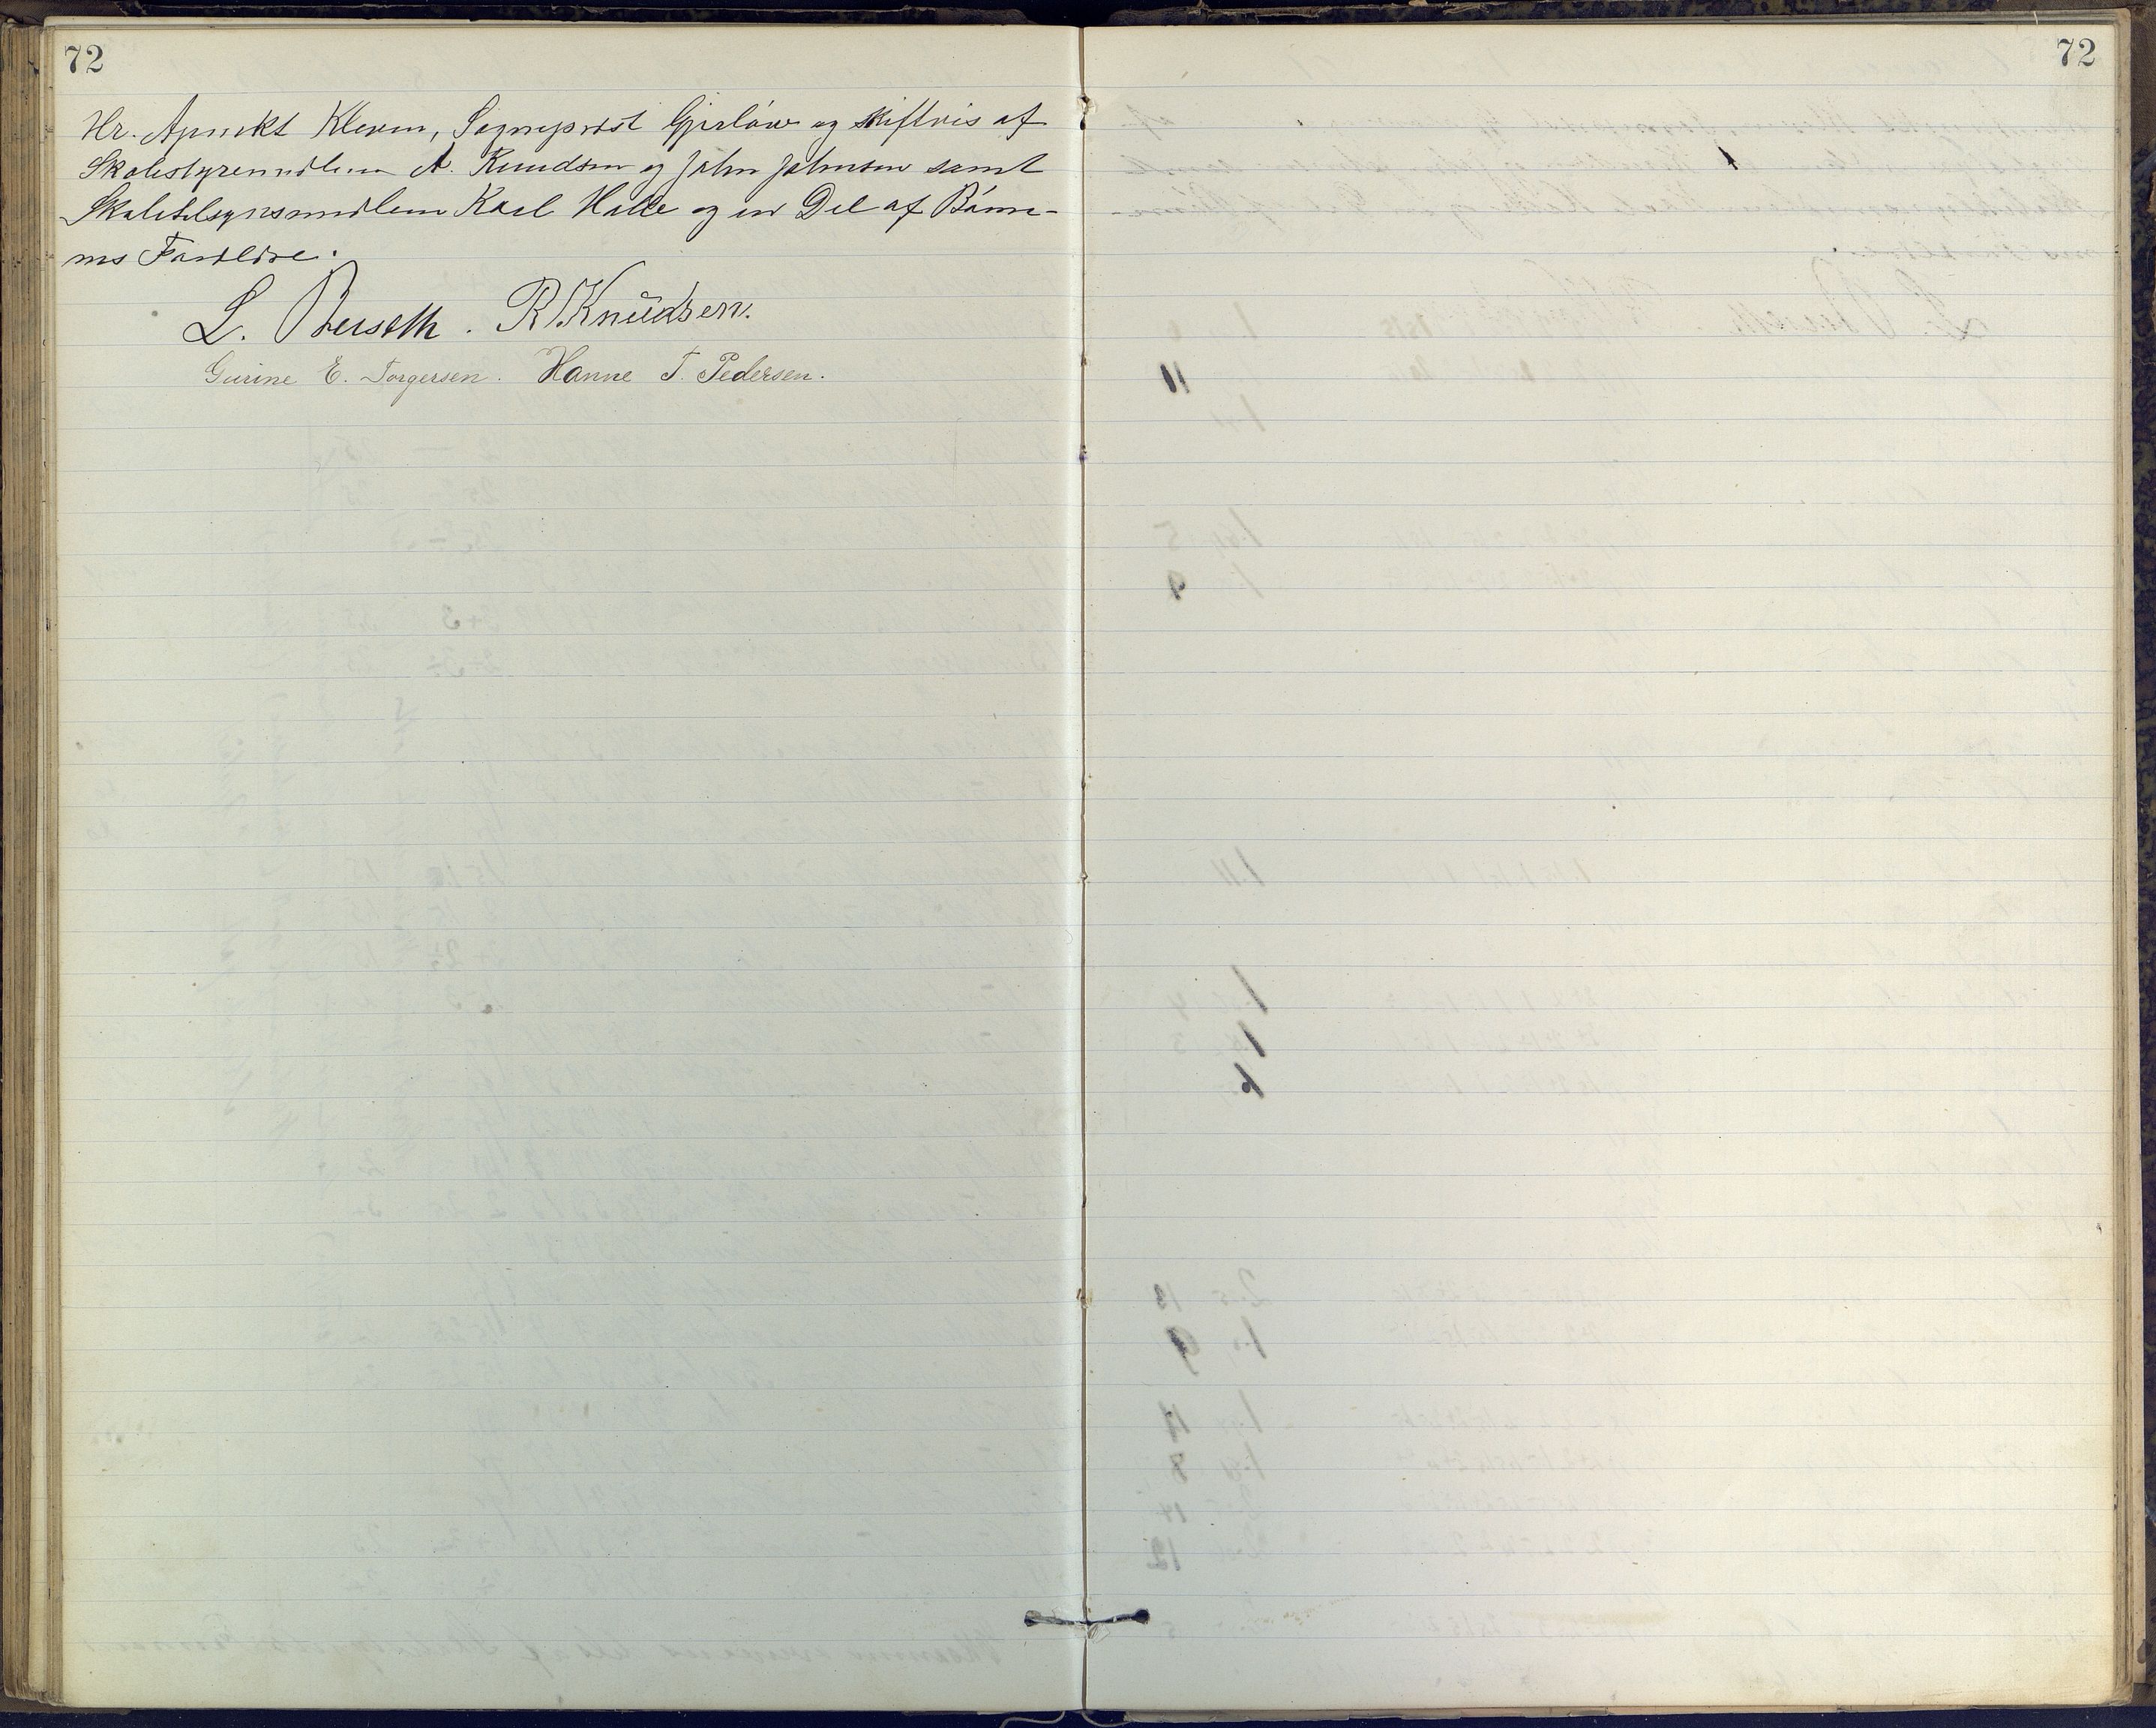 72
72
Hr. Apnekt Kleven, Sogneprest Gjerløw og skiftvis af
Skolestyremedlem A. Knudsen og John Johnsen samt
Skoletilsynsmedlem Karl Halle og en Del af Børne-
nes Foreldre.
L. Berseth. R. Knudsen.
Gurine E. Torgersen. Hanne T. Pedersen.